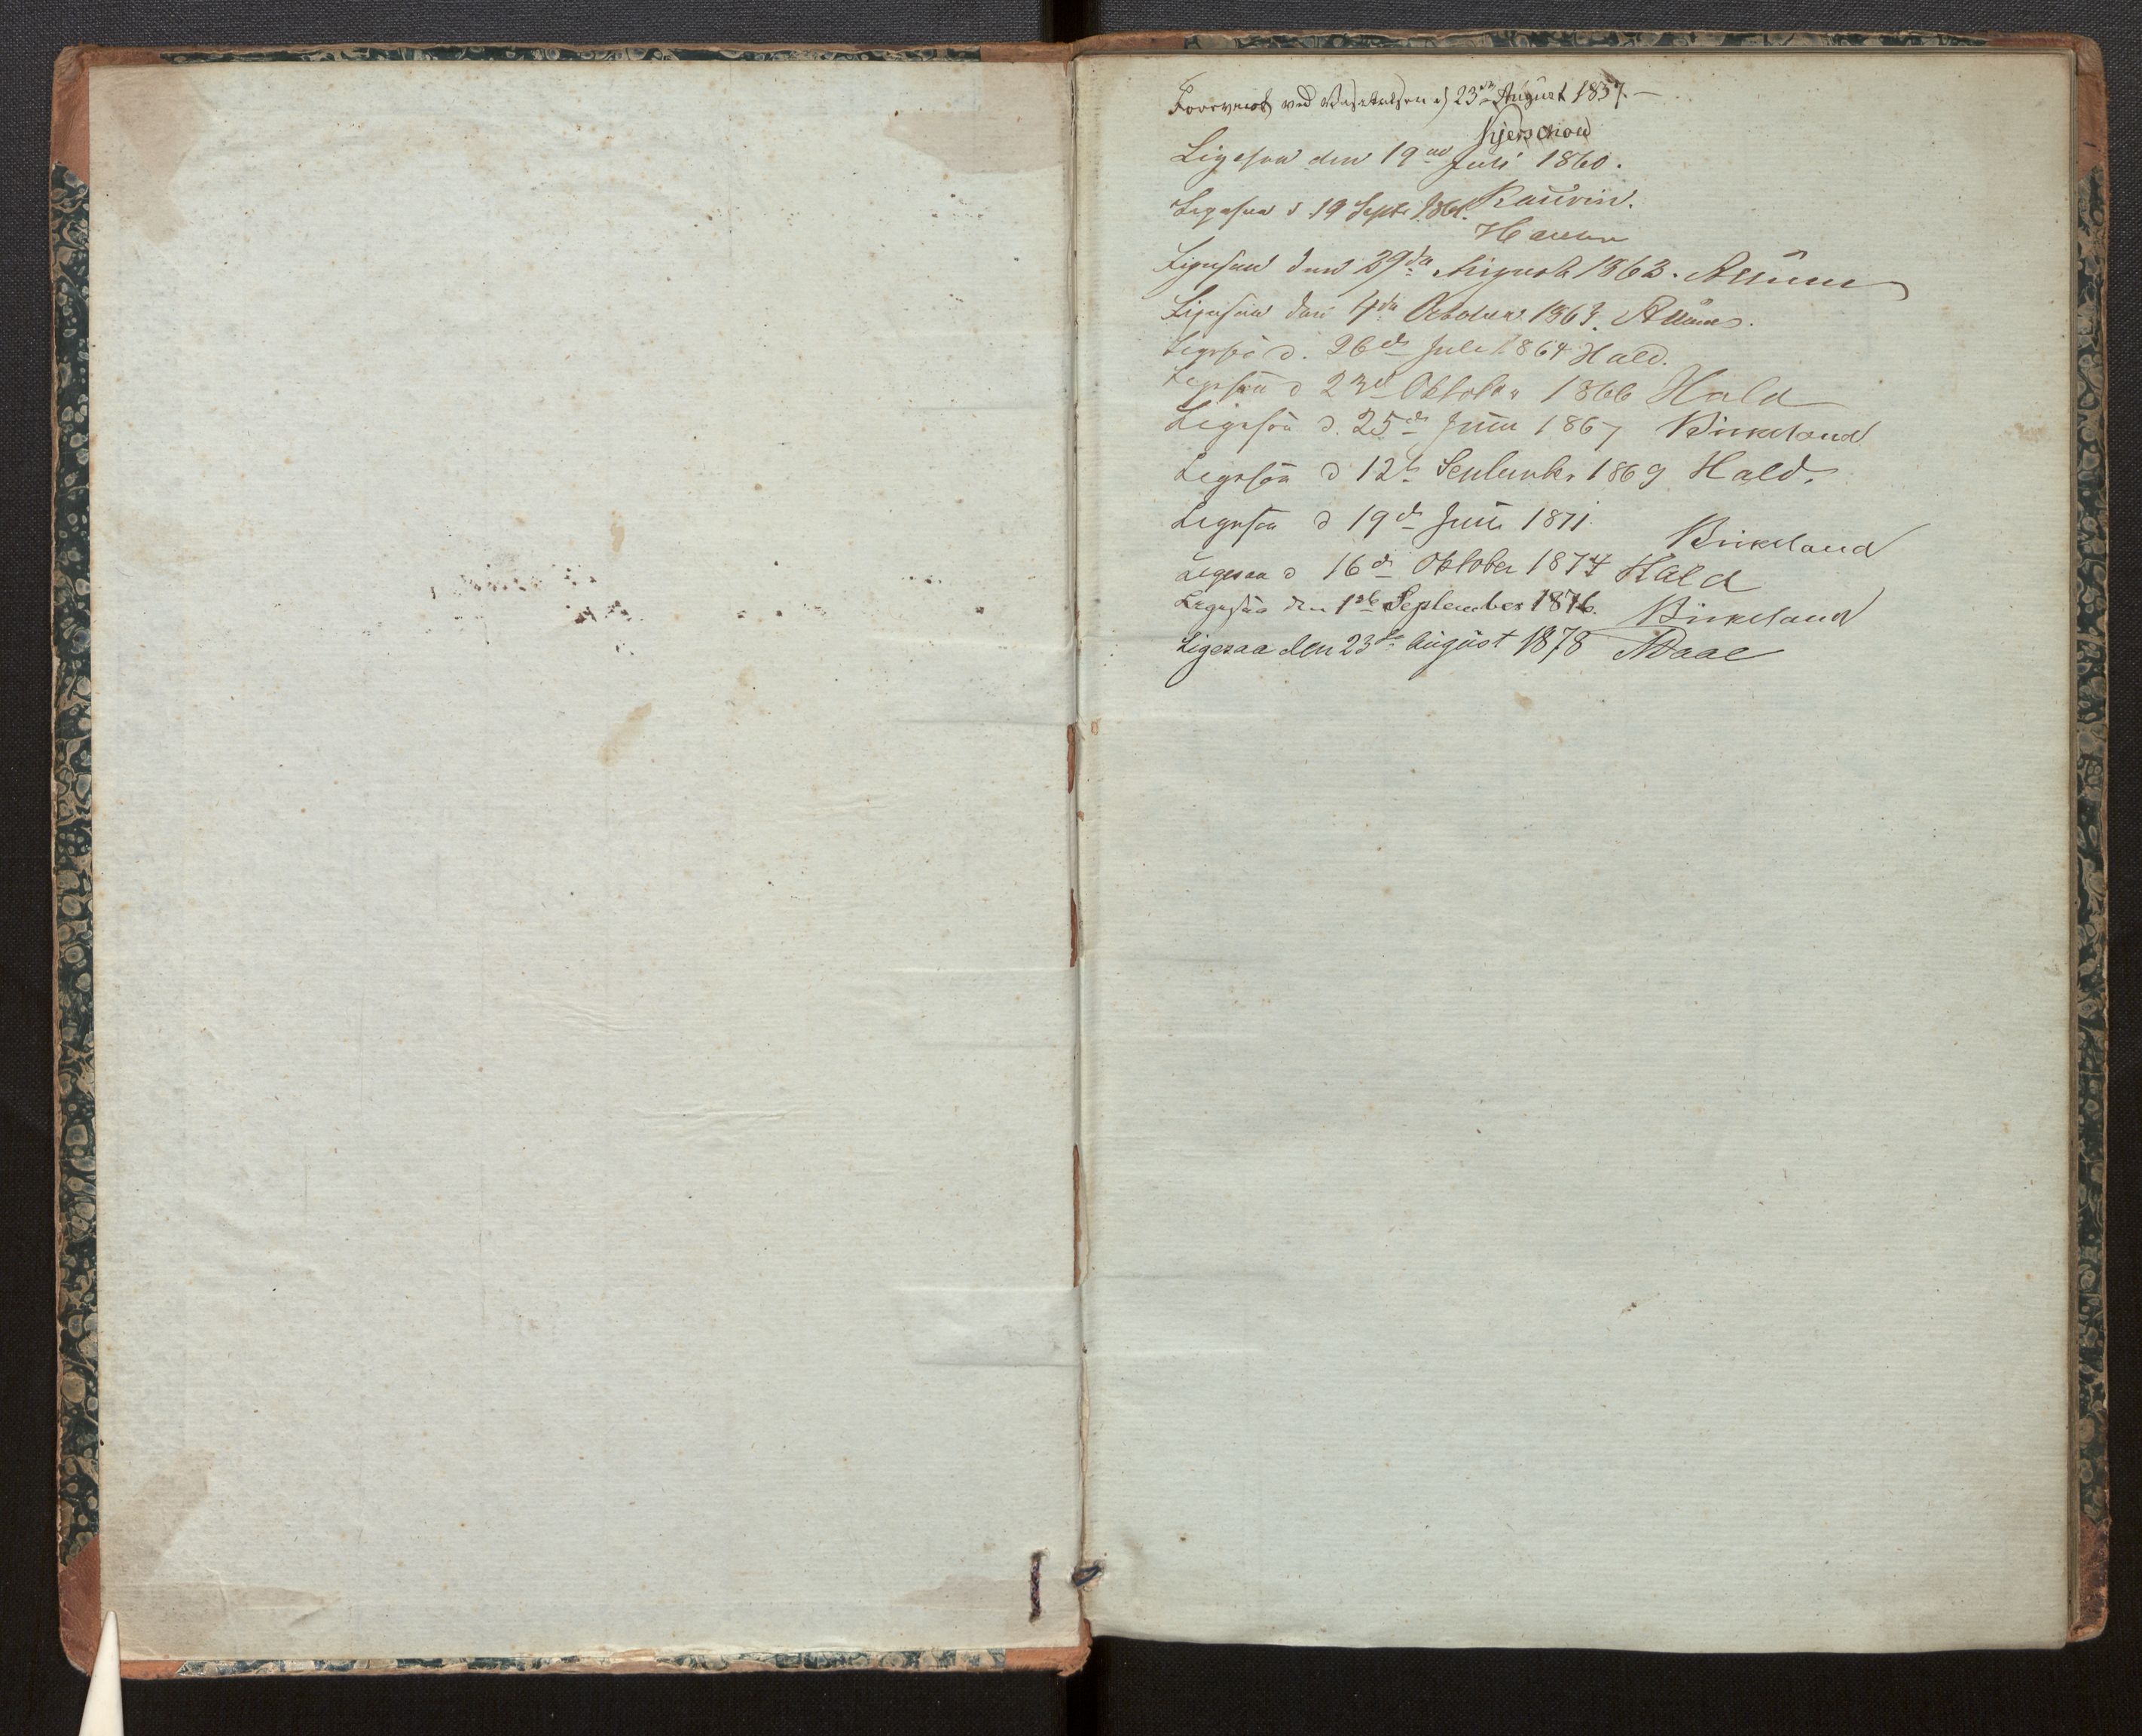 Foreviist ved Visitatsen d 23de August 1857.—
Kjerschow
Ligesaa den 19de Juli 1860.
Kaurin.
Ligesaa d 19 Septr 1861.
Ligesaa den 29de August 1863.
Ligesaa den 4de October 1863.
Ligesaa d. 26de Juli 1864 Hald.
Ligesaa d 23de Oktober 1866 Hald
Ligesaa d. 25de Juni 1867 Birkeland
Ligesaa d 12te September 1869 Hald.
Ligesaa d 19de Juni 1871. Birkeland
Ligesaa d 16de Oktober 1874 Hald
Ligesaa den 1ste September 1876. Birkeland
Ligesaa den 23de August 1878